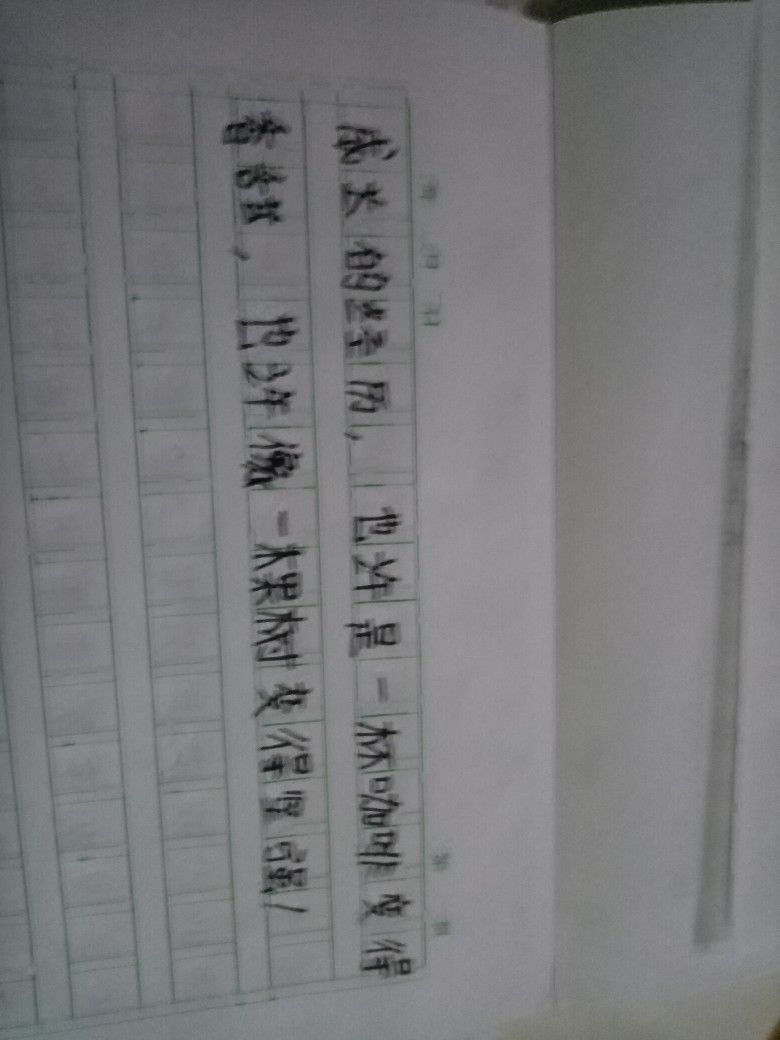 成长的经历，也许是一杯咖啡变得
香甜，也许像一棵树变得坚强！